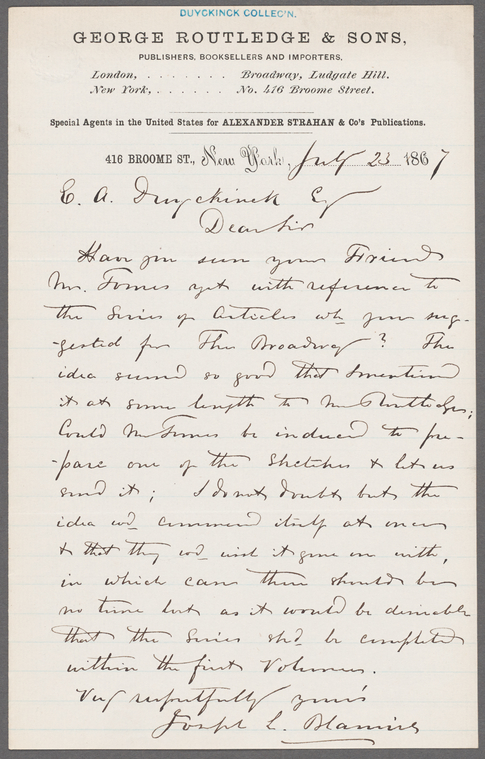 DUYCKINCK COLLEC'N.
GEORGE ROUTLEDGE & SONS,
PUBLISHERS, BOOKSELLERS AND IMPORTERS,
London, . . . . . . . Broadway, Ludgate Hill.
New York, . . . . . . No. 416 Broome Street.
Special Agents in the United States for ALEXANDER STRAHAN & Co's Publications.
416 BROOME ST., New York, July 23 1867
E. A. Duyckinck Esq
Dear Sir
Have you seen your Friend
Mr. Tomes yet with reference to
the Series of Articles wh you sug-
-gested for The Broadway? The
idea seemed so good that I mentioned
it at some length to Mr Routledge;
Could Mr Tomes be induced to pre-
-pare one of the Sketches & let us
send it; I do not doubt but the
idea wd commend itself at once
& that they wd wish it gone on with,
in which case there should be
no time lost as it would be desirable
that the Series shd be completed
within the first Volumes.
Very respectfully yours
Joseph L. Blamire